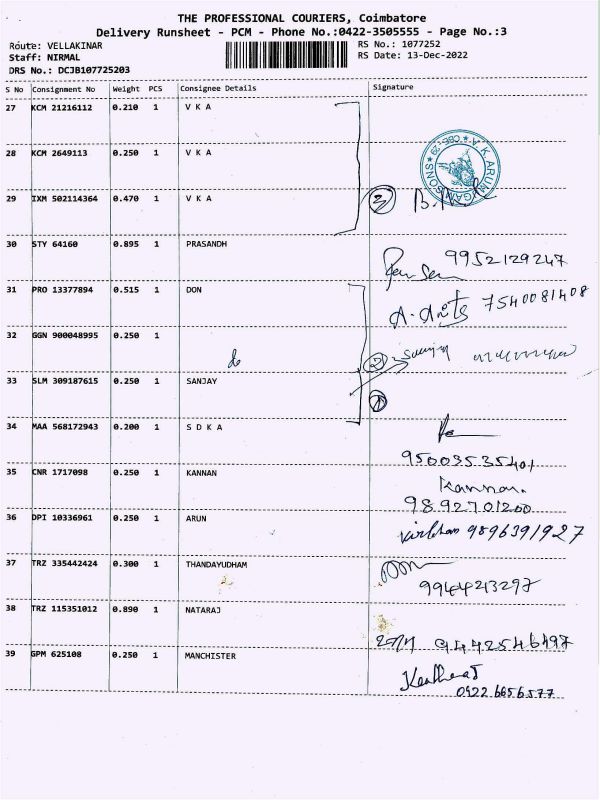 THE PROFESSIONAL COURIERS, Coimbatore
Delivery Runsheet - PCM - Phone No.:0422-3505555 - Page No.:3
Route: VELLAKINAR RS No.: 1077252
Staff: NIRMAL RS Date: 13-Dec-2022
DRS No.: DCJB107725203
S No Consignment No Weight PCS Consignee Details Signature
27 KCM 21216112 0.210 1 V K A
28 KCM 2649113 0.250 1 V K A
29 IXM 502114364 0.470 1 V K A 3
30 STY 64160 0.895 1 PRASANDH
9952129247
31 PRO 13377894 0.515 1 DON
7540081408
32 GGN 900048995 0.250 1
2
33 SLM 309187615 0.250 1 SANJAY
34 MAA 568172943 0.200 1 S D K A
95003535401
35 CNR 1717098 0.250 1 KANNAN
Kannan.
9892701200
36 DPI 10336961 0.250 1 ARUN
9896391927
37 TRZ 335442424 0.300 1 THANDAYUDHAM
9944213297
38 TRZ 115351012 0.890 1 NATARAJ
9442546497
39 GPM 625108 0.250 1 MANCHISTER
0422 6656577